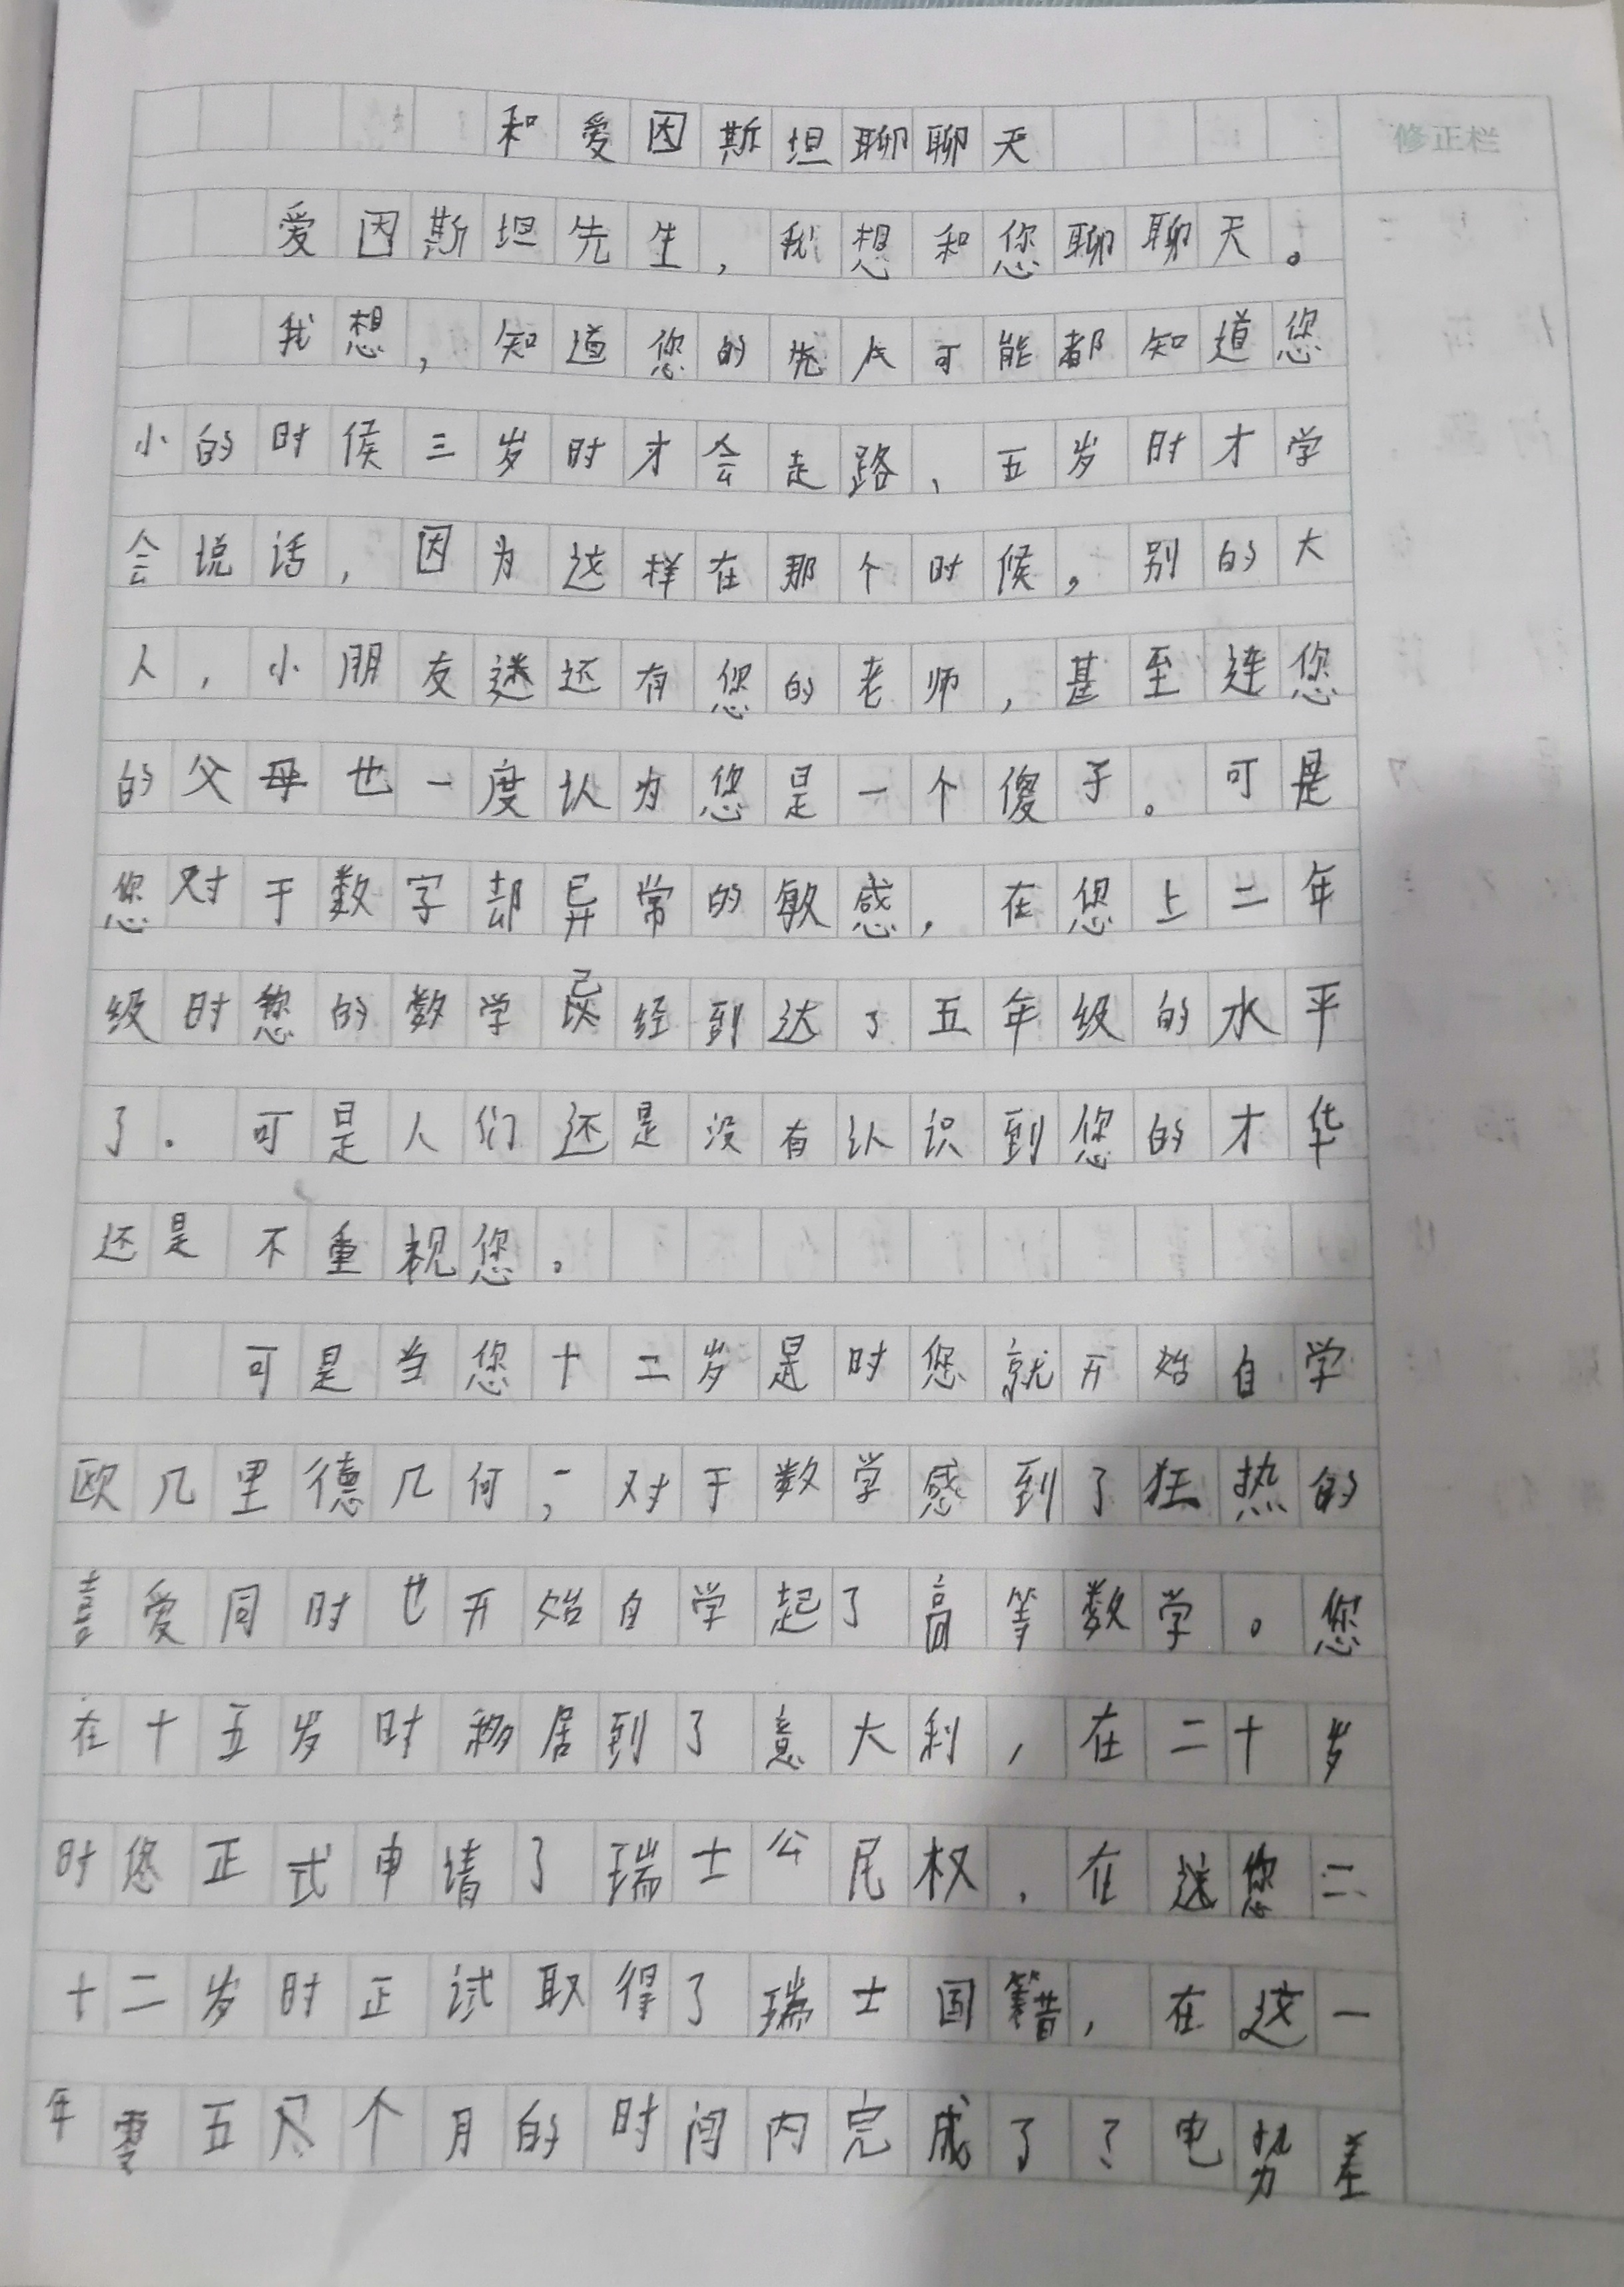 和爱因斯坦聊聊天
修正栏
爱因斯坦先生，我想和您聊聊天。
我想，知道您的人可能都知道您
小的时侯三岁时才会走路，五岁时才学
会说话，因为这样在那个时候，别的大
人，小朋友还有您的老师，甚至连您
的父母也一度认为您是一个傻子。可是
您对于数字却异常的敏感，在您上二年
级时您的数学经到达了五年级的水平
了。可是人们还是没有认识到您的才华
还是不重视您。
可是当您十二岁是时您就开始自学
欧几里德几何，对于数学感到了狂热的
喜爱同时也开始自学起了高等数学。您
在十五岁时移居到了意大利，在二十岁
时您正式申请了瑞士公民权，在您二
十二岁时正试取得了瑞士国籍，在这一
年零五个月的时间内完成了了电势差